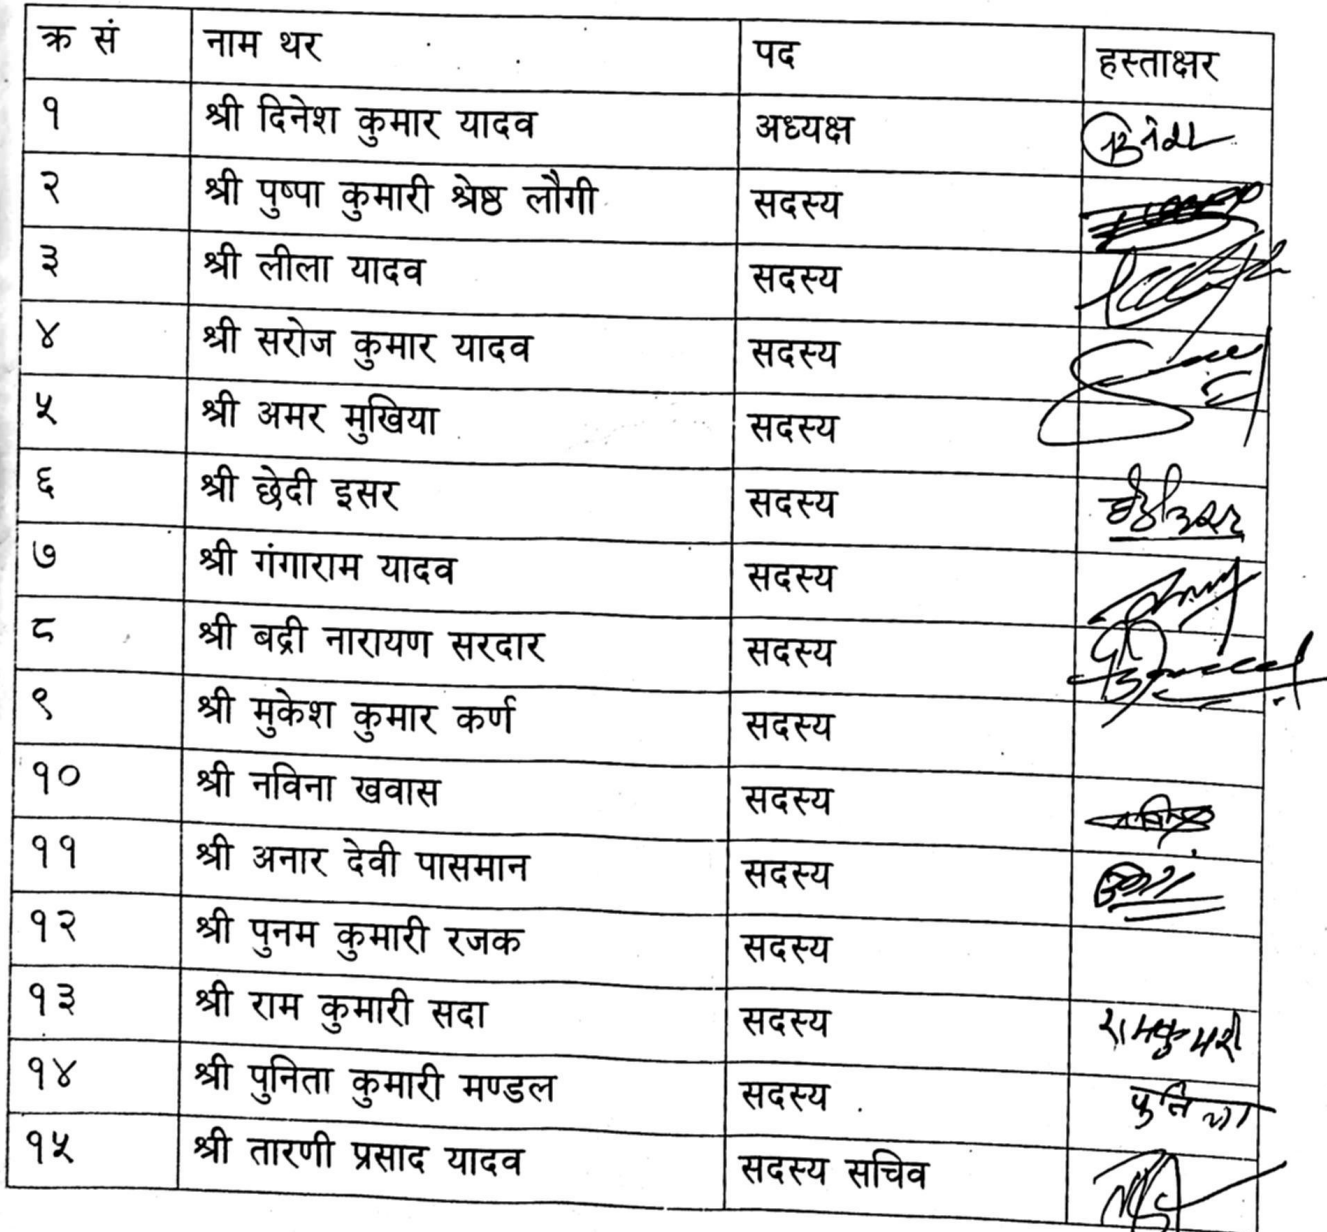 क्र सं नाम थर पद हस्ताक्षर
१ श्री दिनेश कुमार यादव अध्यक्ष
२ श्री पुष्पा कुमारी श्रेष्ठ लौगी सदस्य
३ श्री लीला यादव सदस्य
४ श्री सरोज कुमार यादव सदस्य
५ श्री अमर मुखिया सदस्य
६ श्री छेदी इसर सदस्य
७ श्री गंगाराम यादव सदस्य
८ श्री बद्री नारायण सरदार सदस्य
९ श्री मुकेश कुमार कर्ण सदस्य
१० श्री नविना खवास सदस्य
११ श्री अनार देवी पासमान सदस्य
१२ श्री पुनम कुमारी रजक सदस्य
१३ श्री राम कुमारी सदा सदस्य रामकुमारी
१४ श्री पुनिता कुमारी मण्डल सदस्य पुनिता
१५ श्री तारणी प्रसाद यादव सदस्य सचिव